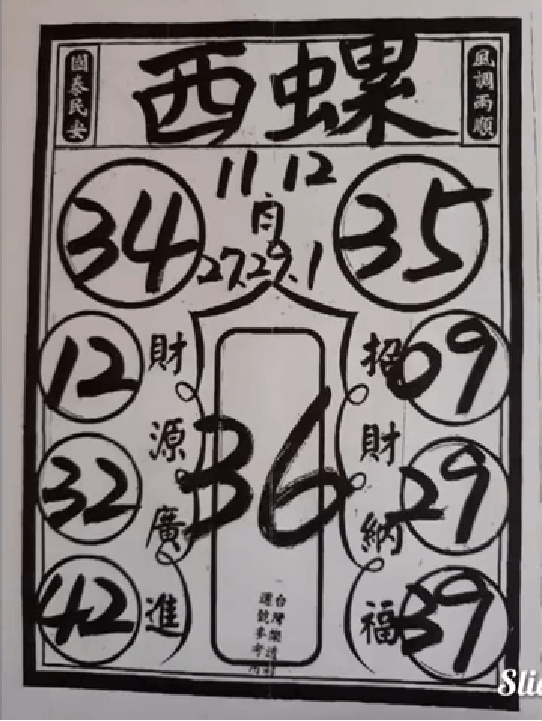 國泰民安
西螺
風調雨順
11.12
月
27.29.1
34
35
12
財源廣進
招財納福
09
32
36
29
42
39
台灣樂透
選號參考用
Slid